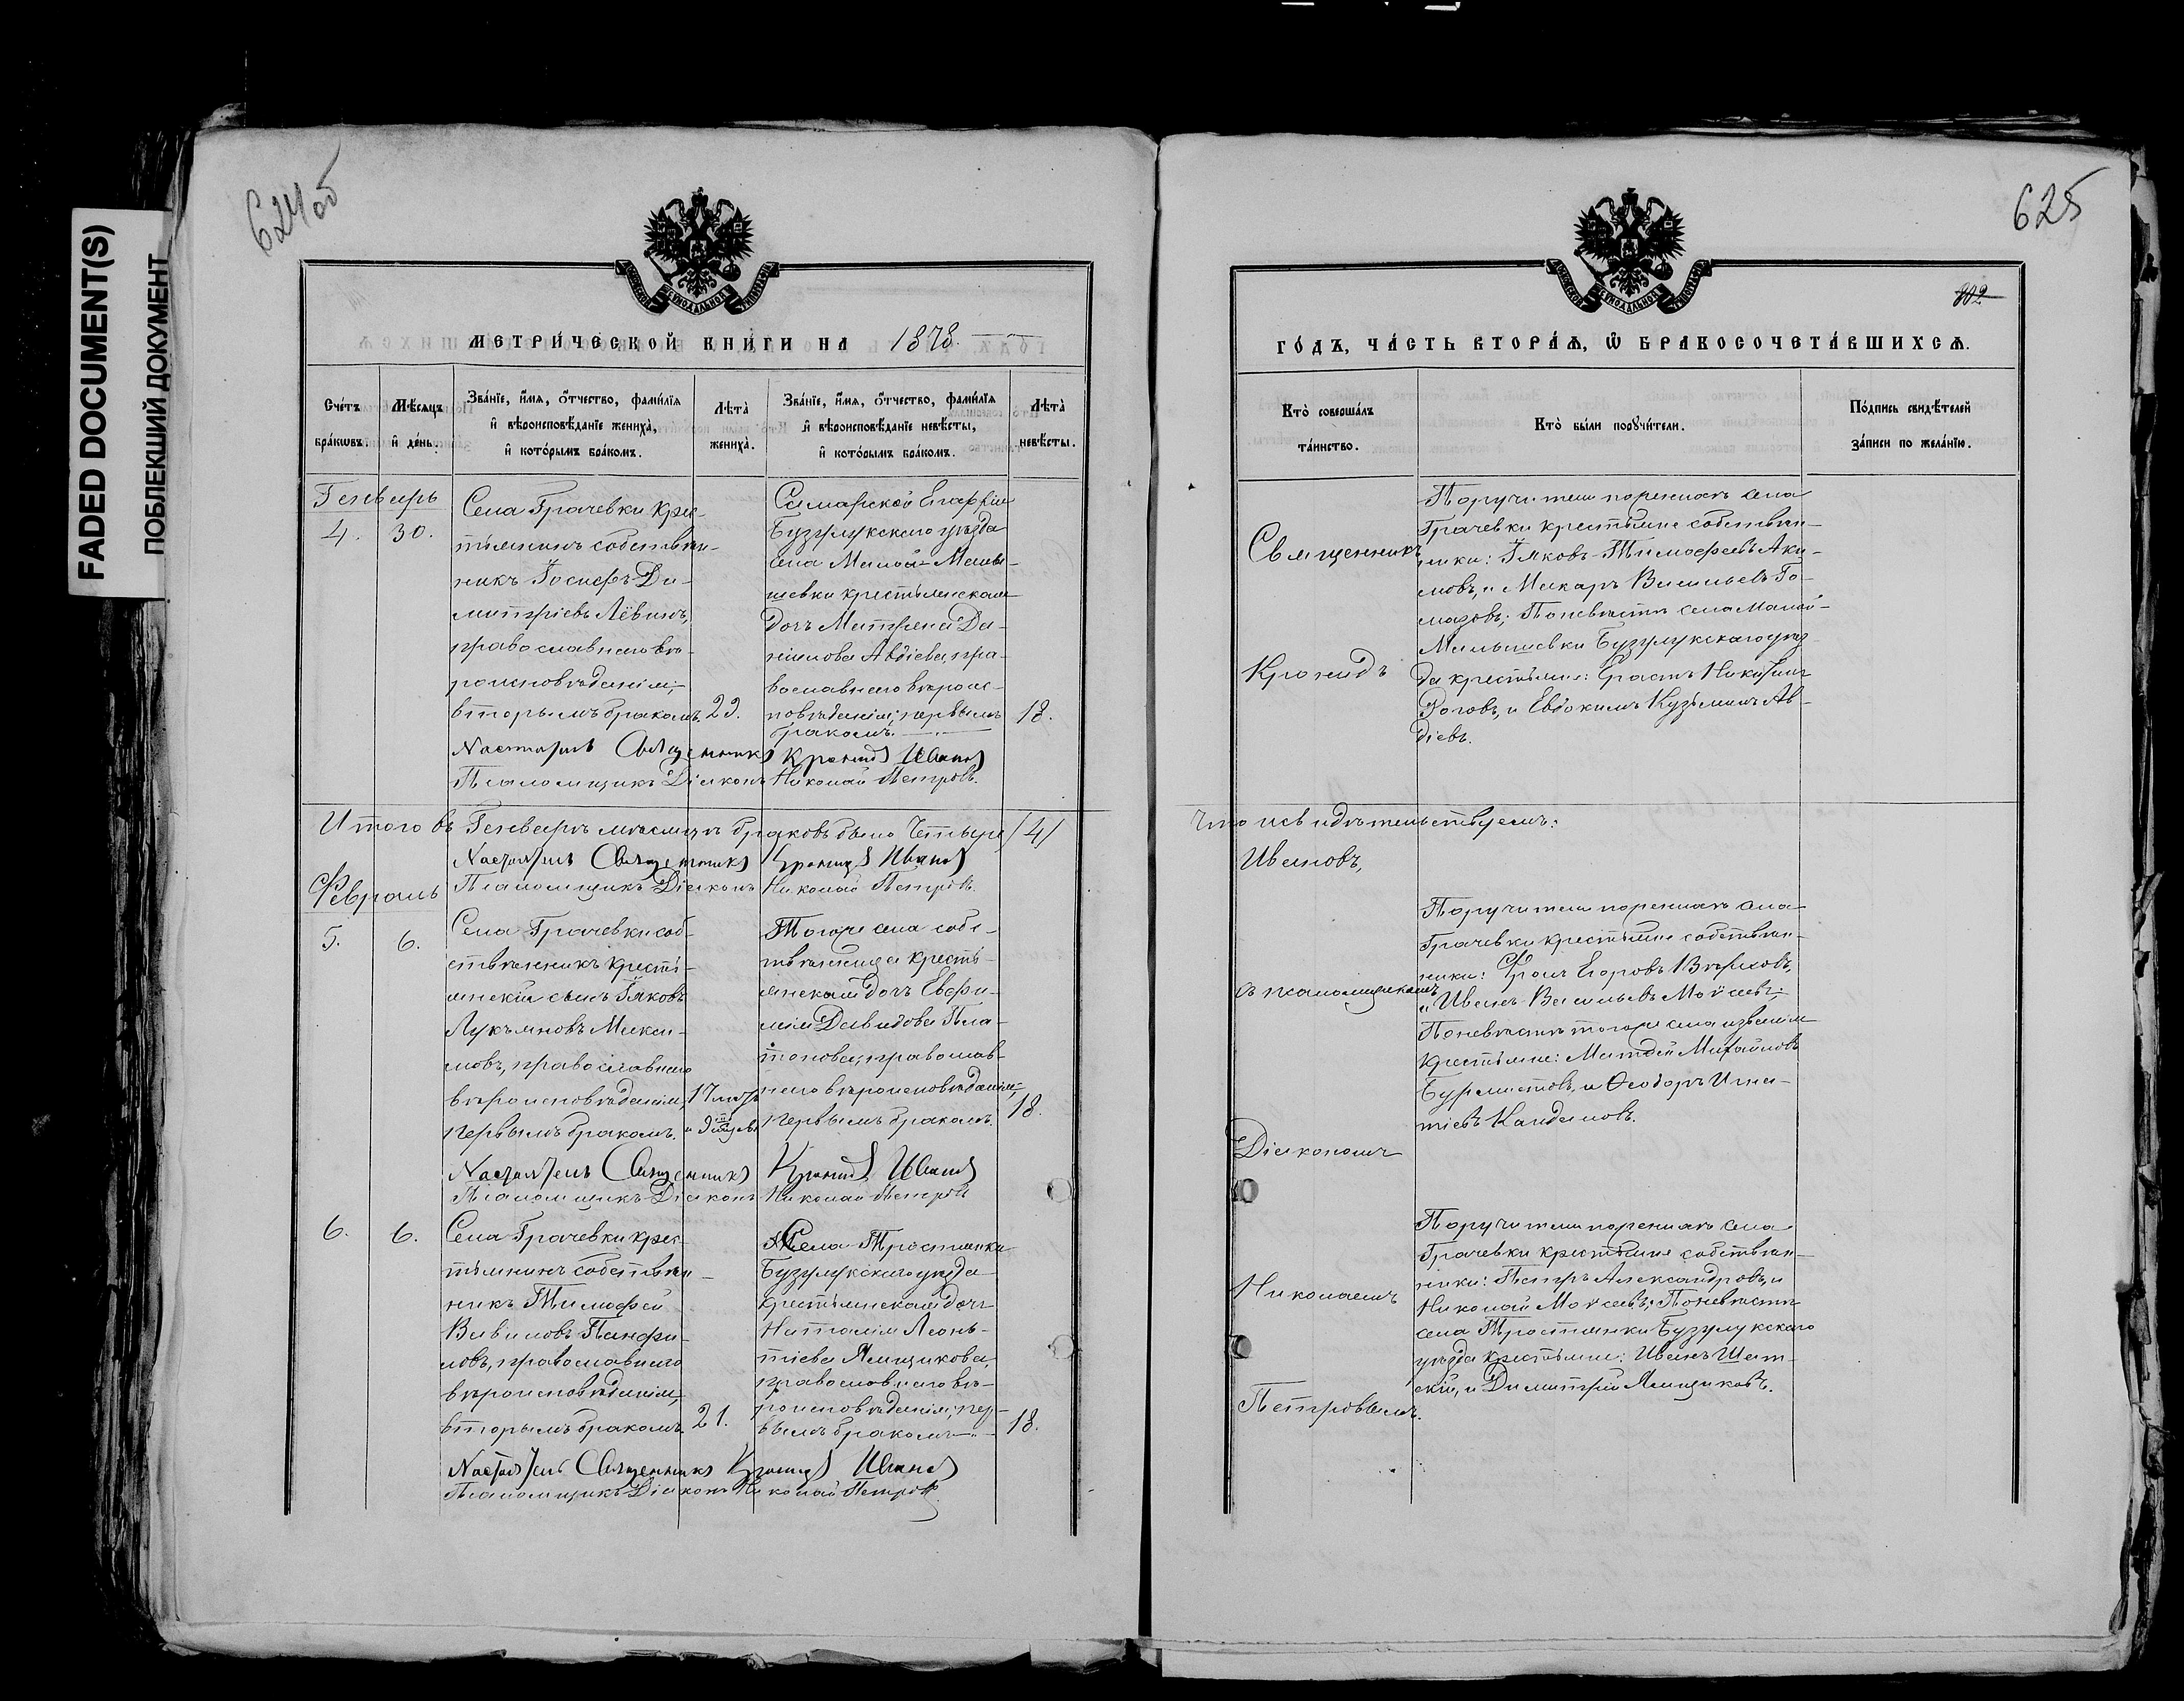 FADED DOCUMENT(S)
ПОБЛЕКШИЙ ДОКУМЕНТ
624об
МЕТРИ́ЧЕСКОЙ КНИ́ГИ НА 1878.
Сче́тъ бра́кѡвъ.
Мѣ́сяцъ и҆ де́нь.
Зва́нїе, и҆́мя, ѻ҆́тчество, фами́лїя
и҆ вѣроисповѣ́данїе жениха̀,
и҆ кото́рымъ бра́комъ.
Лѣта̀ жениха̀.
Зва́нїе, и҆́мя, ѻ҆́тчество, фами́лїя
и҆ вѣроисповѣ́данїе невѣ́сты,
и҆ кото́рымъ бра́комъ.
Лѣта̀ невѣ́сты.
Генварь
4. 30.
Села Грачевки крес-
тьянинъ собствен-
никъ Іосифъ Ди-
митріевъ Лёвинъ,
православнаго вѣ-
роисповѣданія;
вторымъ бракомъ.
23.
Самарской Епархіи
Бузулукскаго уѣзда
села Малой-Малы-
шевки крестьянская
дочь Матрена Да-
нилова Авдіева, пра-
вославнаго вѣроис-
повѣданія; первымъ
бракомъ.
18.
Настоятель Священникъ Кронидъ Ивановъ
Псаломщикъ Діаконъ Николай Петровъ.
Итого въ Генварѣ мѣсяцѣ браковъ было Четыре /4/
Настоятель Священникъ Кронидъ Ивановъ
Псаломщикъ Діаконъ Николай Петровъ.
Февраль
5. 6.
Села Грачевки соб-
ственникъ кресть-
янскій сынъ Іаковъ
Лукьяновъ Макси-
мовъ, православнаго
вѣроисповѣданія,
первымъ бракомъ.
17 лѣтъ
Тогоже села собс-
твенница кресть-
янская дочь Евфи-
мія Давидова Пла-
тонова, православ-
наго вѣроисповѣданія;
первымъ бракомъ.
18.
Настоятель Священникъ Кронидъ Ивановъ
Псаломщикъ Діаконъ Николай Петровъ
6. 6.
Села Грачевки крес-
тьянинъ собствен-
никъ Тимофей
Вавиловъ Панфи-
ловъ, православнаго
вѣроисповѣданія,
вторымъ бракомъ.
21.
Села Тростянки
Бузулукскаго уѣзда
крестьянская дочь
Наталія Леонь-
тіева Ямщикова,
православнаго вѣ-
роисповѣданія; пер-
вымъ бракомъ
18.
Настоятель Священникъ Кронидъ Ивановъ
Псаломщикъ Діаконъ Николай Петровъ.
625
802
ГО́ДЪ, ЧА́СТЬ ВТОРА́Я, Ѡ҆ БРАКОСОЧЕТА́ВШИХСЯ.
Кто̀ соверша́лъ та́инство.
Кто̀ бы́ли порꙋчи́тели.
По́дпись свидѣ́телей
за́писи по жела́нїю.
Священникъ
Кронидъ
Поручители по женихѣ села
Грачевки крестьяне собствен-
ники: Іаковъ Тимофеевъ Аки-
мовъ, и Макаръ Васильевъ Го-
мазовъ; По невѣстѣ села Малой-
Малышевки Бузулукскаго уѣз
да крестьяне: Ерастъ Никитинъ
Роговъ, и Евдокимъ Кузьминъ Ав-
діевъ.
Что и свидѣтельствуемъ:
Ивановъ,
съ псаломщикомъ
Діакономъ
Поручители по женихѣ села
Грачевки крестьяне собствен-
ники: Фролъ Егоровъ
и Иванъ Васильевъ Моѵсеевъ;
По невѣстѣ того же села званія
крестьяне: Матвѣй Михайловъ
Бурмистовъ, и Ѳеодоръ Игна-
тіевъ Кандаловъ.
Николаемъ
Петровымъ.
Поручители по женихѣ села
Грачевки крестьяне собствен-
ники: Петръ Александровъ, и
Николай Моѵсеевъ; По невѣстѣ
села Тростянки Бузулукскаго
уѣзда крестьяне: Иванъ Шат-
скій, и Димитрій Ямщиковъ.